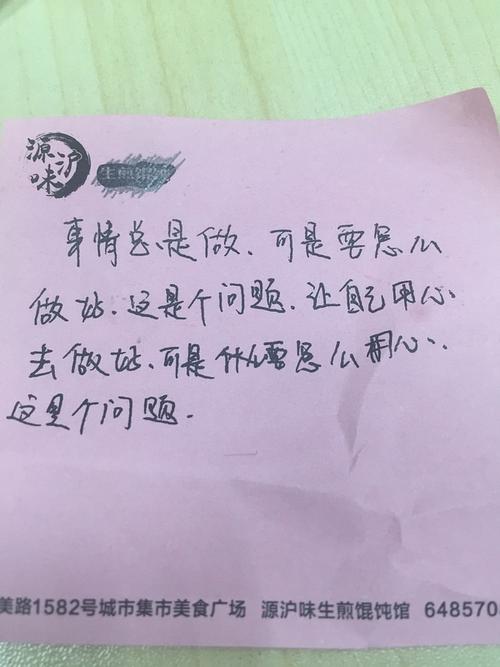 源沪味
生煎馄饨
事情总是做、可是要怎么
做好、这是个问题、让自己用心
去做好、可是什么要怎么用心、
这是个问题.
美路1582号城市集市美食广场 源沪味生煎馄饨馆 648570